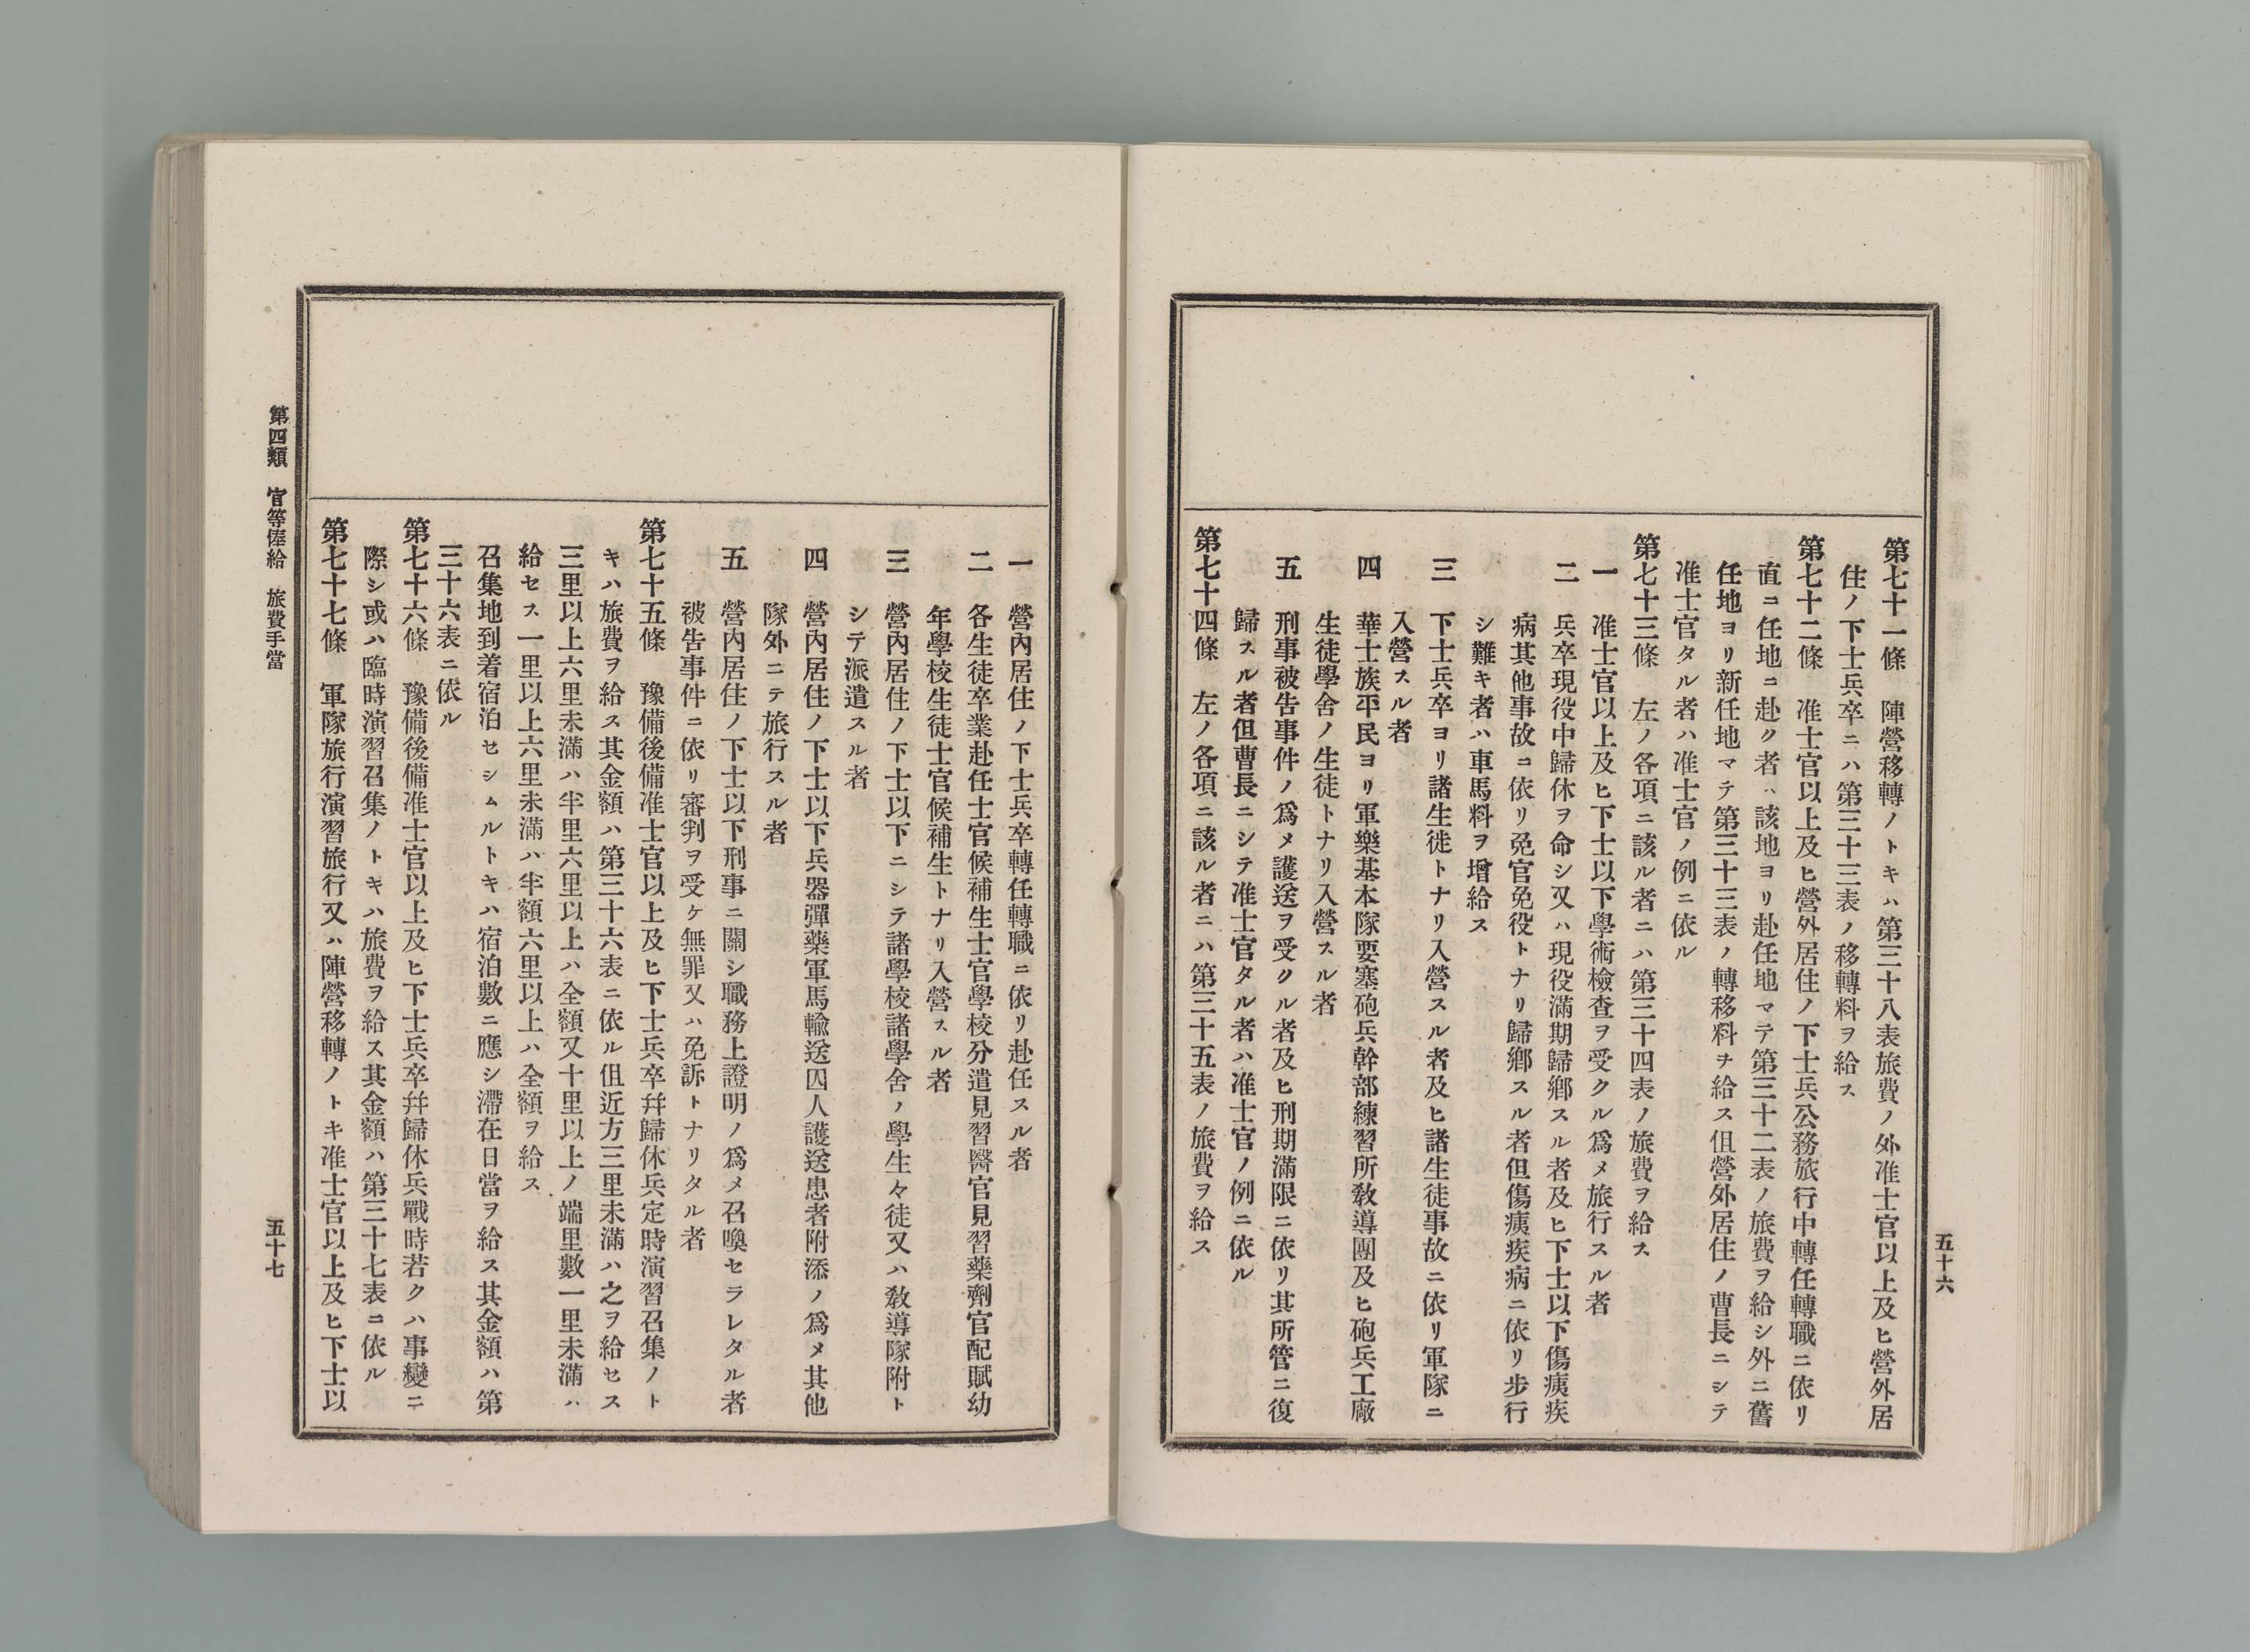 第七十一條　陣營移轉ノトキハ第三十八表旅費ノ外准士官以上及ヒ營外居
住ノ下士兵卒ニハ第三十三表ノ移轉料ヲ給ス
第七十二條　准士官以上及ヒ營外居住ノ下士兵公務旅行中轉任轉職ニ依リ
直ニ任地ニ赴ク者ハ該地ヨリ赴任地マテ第三十二表ノ旅費ヲ給シ外ニ舊
任地ヨリ新任地マテ第三十三表ノ轉移料ヲ給ス伹營外居住ノ曹長ニシテ
准士官タル者ハ准士官ノ例ニ依ル
第七十三條　左ノ各項ニ該ル者ニハ第三十四表ノ旅費ヲ給ス
一　准士官以上及ヒ下士以下學術檢查ヲ受クル爲メ旅行スル者
二　兵卒現役中歸休ヲ命シ又ハ現役滿期歸鄕スル者及ヒ下士以下傷痍疾
病其他事故ニ依リ免官免役トナリ歸鄕スル者但傷痍疾病ニ依リ步行
シ難キ者ハ車馬料ヲ增給ス
三　下士兵卒ヨリ諸生徒トナリ入營スル者及ヒ諸生徒事故ニ依リ軍隊ニ
入營スル者
四　華士族平民ヨリ軍樂基本隊要塞砲兵幹部練習所敎導團及ヒ砲兵工廠
生徒學舍ノ生徒トナリ入營スル者
五　刑事被告事件ノ爲メ護送ヲ受クル者及ヒ刑期滿限ニ依リ其所管ニ復
歸スル者但曹長ニシテ准士官タル者ハ准士官ノ例ニ依ル
第七十四條　左ノ各項ニ該ル者ニハ第三十五表ノ旅費ヲ給ス
五十六
一　營內居住ノ下士兵卒轉任轉職ニ依リ赴任スル者
二　各生徒卒業赴任士官候補生士官學校分遣見習醫官見習藥劑官配賦幼
年學校生徒士官候補生トナリ入營スル者
三　營內居住ノ下士以下ニシテ諸學校諸學舍ノ學生々徒又ハ敎導隊附ト
シテ派遣スル者
四　營內居住ノ下士以下兵器彈藥軍馬輸送囚人護送患者附添ノ爲メ其他
隊外ニテ旅行スル者
五　營內居住ノ下士以下刑事ニ關シ職務上證明ノ爲メ召喚セラレタル者
被告事件ニ依リ審判ヲ受ケ無罪又ハ免訴トナリタル者
第七十五條　豫備後備准士官以上及ヒ下士兵卒幷歸休兵定時演習召集ノト
キハ旅費ヲ給ス其金額ハ第三十六表ニ依ル伹近方三里未滿ハ之ヲ給セス
三里以上六里未滿ハ半里六里以上ハ全額又十里以上ノ端里數一里未滿ハ
給セス一里以上六里未滿ハ半額六里以上ハ全額ヲ給ス
召集地到着宿泊セシムルトキハ宿泊數ニ應シ滯在日當ヲ給ス其金額ハ第
三十六表ニ依ル
第七十六條　豫備後備准士官以上及ヒ下士兵卒幷歸休兵戰時若クハ事變ニ
際シ或ハ臨時演習召集ノトキハ旅費ヲ給ス其金額ハ第三十七表ニ依ル
第七十七條　軍隊旅行演習旅行又ハ陣營移轉ノトキ准士官以上及ヒ下士以
第四類　官等俸給　旅費手當
五十七